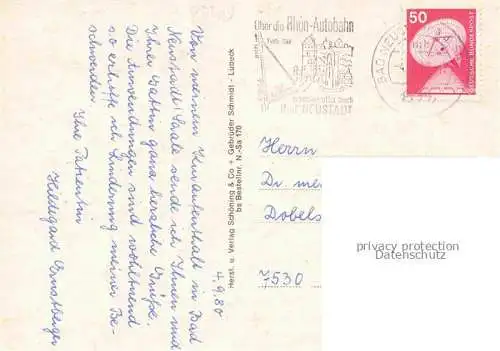 4.9.80
Von meinem Kuraufenthalt in Bad
Neustadt-Saale sende ich Ihnen und
Ihrer Gattin ganz herzliche Grüße.
Die Anwendungen sind wohltuend
so erhoffe ich Linderung meiner Be-
schwerden.
Ihre Patientin
Hildegard
Herst. u. Verlag Schöning & Co + Gebrüder Schmidt - Lübeck
bs Bestellnr. N.-Sa 170
Über die Rhön-Autobahn
NEUSTADT
BAD NEU
50
DEUTSCHE BUNDESPOST
Herrn
Dr. me
Dobels
7530
privacy protection
Datenschutz